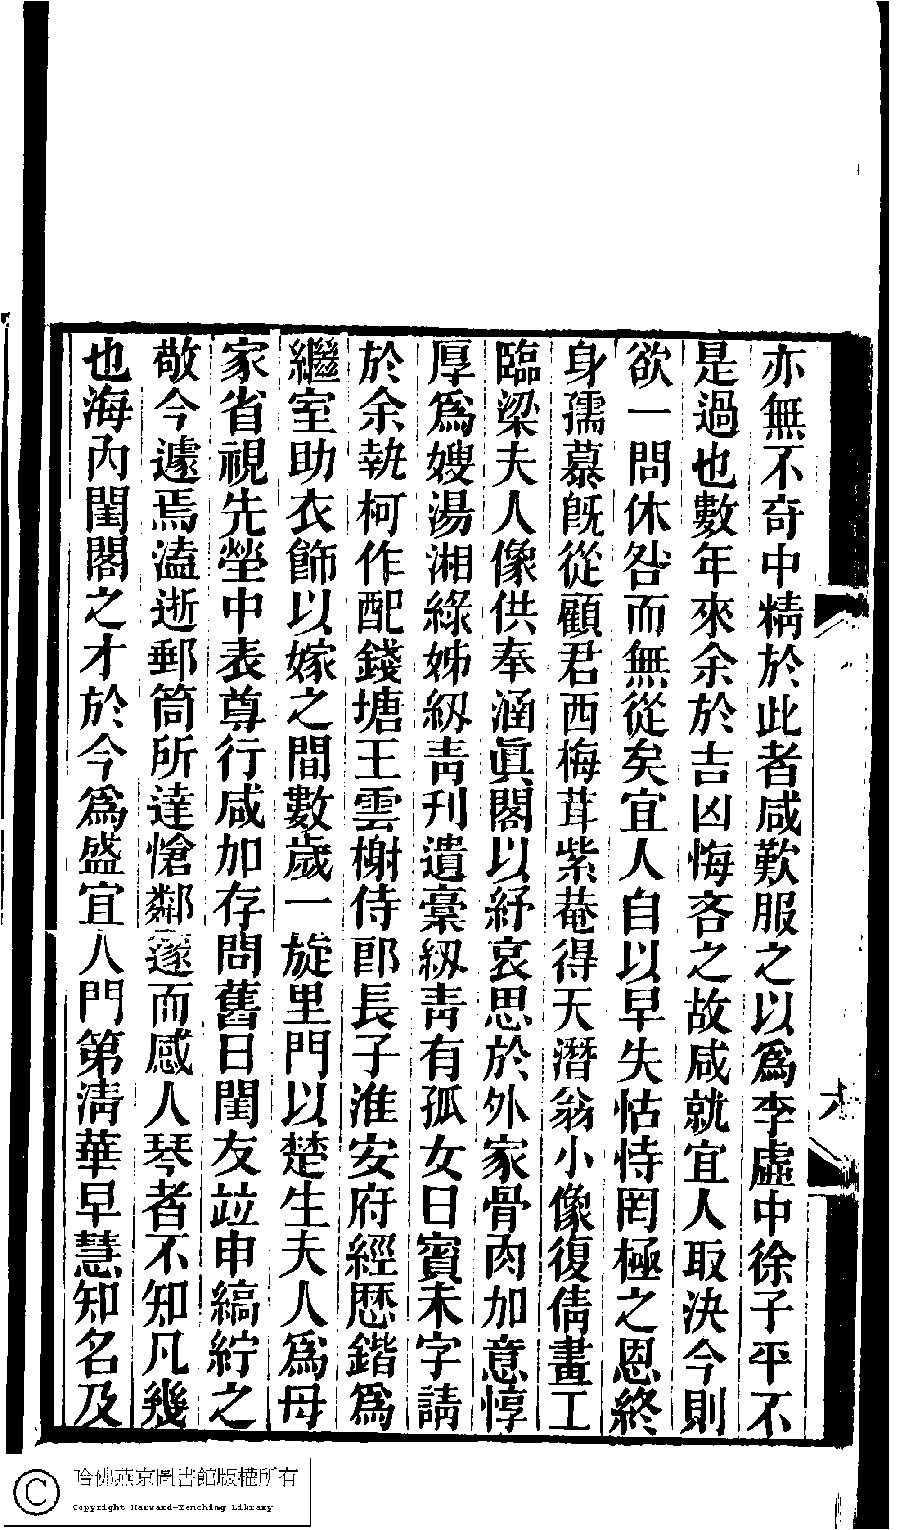 亦無不奇中精於此者咸歎服之以爲李虛中徐子平不
是過也數年來余於吉凶悔吝之故咸就宜人取決今則
欲一問休咎而無從矣宜人自以早失怙恃罔極之恩終
身孺慕旣從顧君西梅茸紫菴得天潛翁小像復倩畫工
臨梁夫人像供奉涵眞閣以紓哀思於外家骨肉加意惇
厚爲嫂湯湘綠姊紉靑刊遺稾紉靑有孤女日賓未字請
於余執柯作配錢塘王雲榭侍郎長子淮安府經歷鍇爲
繼室助衣飾以嫁之間數歲一旋里門以楚生夫人爲母
家省視先塋中表尊行咸加存問舊日閨友竝申縞紵之
敬今遽焉溘逝郵筒所達愴鄰邃而感人琴者不知凡幾
也海內閨閣之才於今爲盛宜人門第淸華早慧知名及
哈佛燕京圖書館版權所有
Copyright Harvard-Yenching Library